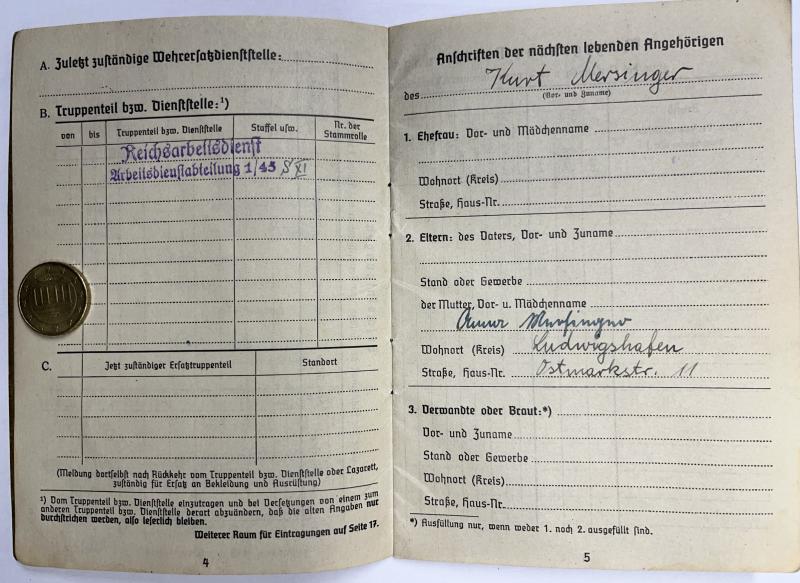 A. Zuletzt zuständige Wehrersatzdienststelle:
B. Truppenteil bzw. Dienststelle:¹)
von bis Truppenteil bzw. Dienststelle Staffel usw. Nr. der Stammrolle
Reichsarbeitsdienst
Arbeitsdienstabteilung 1/45
C. Jetzt zuständiger Ersatztruppenteil Standort
(Meldung dortselbst nach Rückkehr vom Truppenteil bzw. Dienststelle oder Lazarett,
zuständig für Ersatz an Bekleidung und Ausrüstung)
¹) Vom Truppenteil bzw. Dienststelle einzutragen und bei Versetzungen von einem zum
anderen Truppenteil bzw. Dienststelle derart abzuändern, daß die alten Angaben nur
durchstrichen werden, also leserlich bleiben.
Weiterer Raum für Eintragungen auf Seite 17.
4
Anschriften der nächsten lebenden Angehörigen
des Kurt Mersinger
(Vor- und Zuname)
1. Ehefrau: Vor- und Mädchenname
Wohnort (Kreis)
Straße, Haus-Nr.
2. Eltern: des Vaters, Vor- und Zuname
Stand oder Gewerbe
der Mutter, Vor- u. Mädchenname
Mersinger
Wohnort (Kreis) Ludwigshafen
Straße, Haus-Nr. Ostmarkstr. 11
3. Verwandte oder Braut:*)
Vor- und Zuname
Stand oder Gewerbe
Wohnort (Kreis)
Straße, Haus-Nr.
*) Ausfüllung nur, wenn weder 1. noch 2. ausgefüllt sind.
5